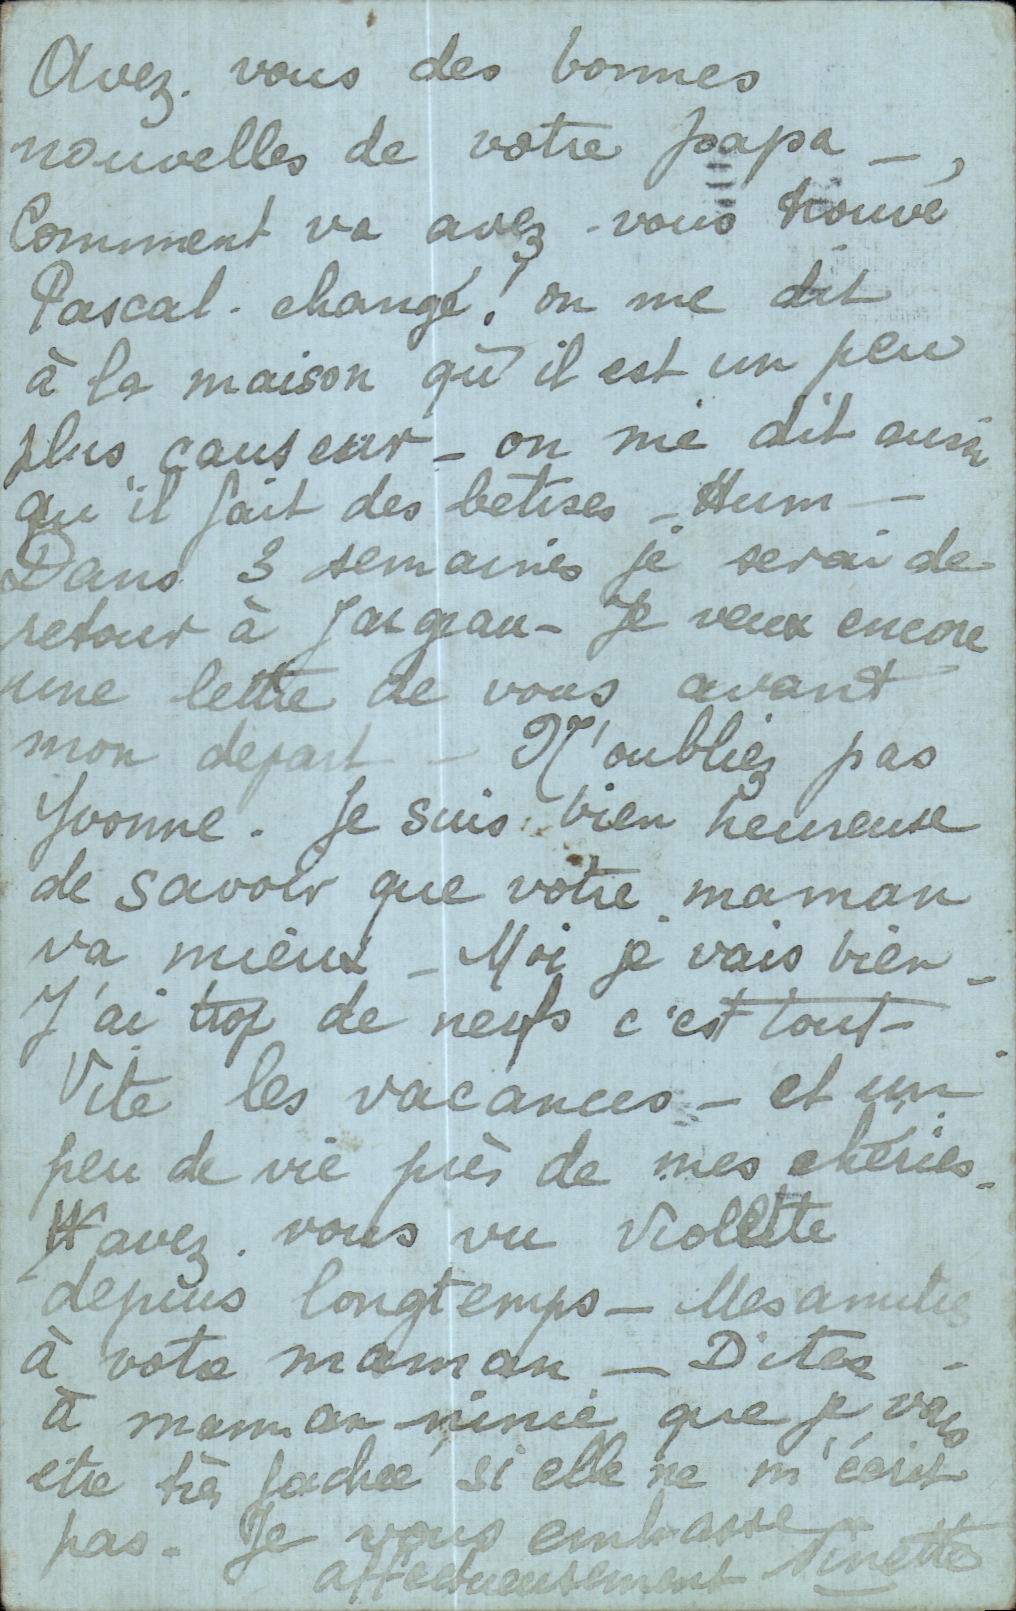 Avez-vous des bonnes
nouvelles de votre papa —,
Comment va avez-vous trouvé
Pascal - changé! on me dit
à la maison qu'il est un peu
plus causeur - on me dit aussi
qu'il fait des betises - Hum —
Dans 3 semaines je serai de
retour à Jargeau - Je veux encore
une lettre de vous avant
mon depart - N'oubliez pas
Yvonne. Je suis bien heureuse
de savoir que votre maman
va mieux - Moi je vais bien -
J'ai trop de nerfs c'est tout -
Vite les vacances - et un
peu de vie près de mes chéries -
avez-vous vu Violette
depuis longtemps - Mes amities
à votre maman — Dites -
à maman ninie que je vais
etre très fachée si elle ne m'écrit
pas - Je vous embrasse
affectueusement Ninette